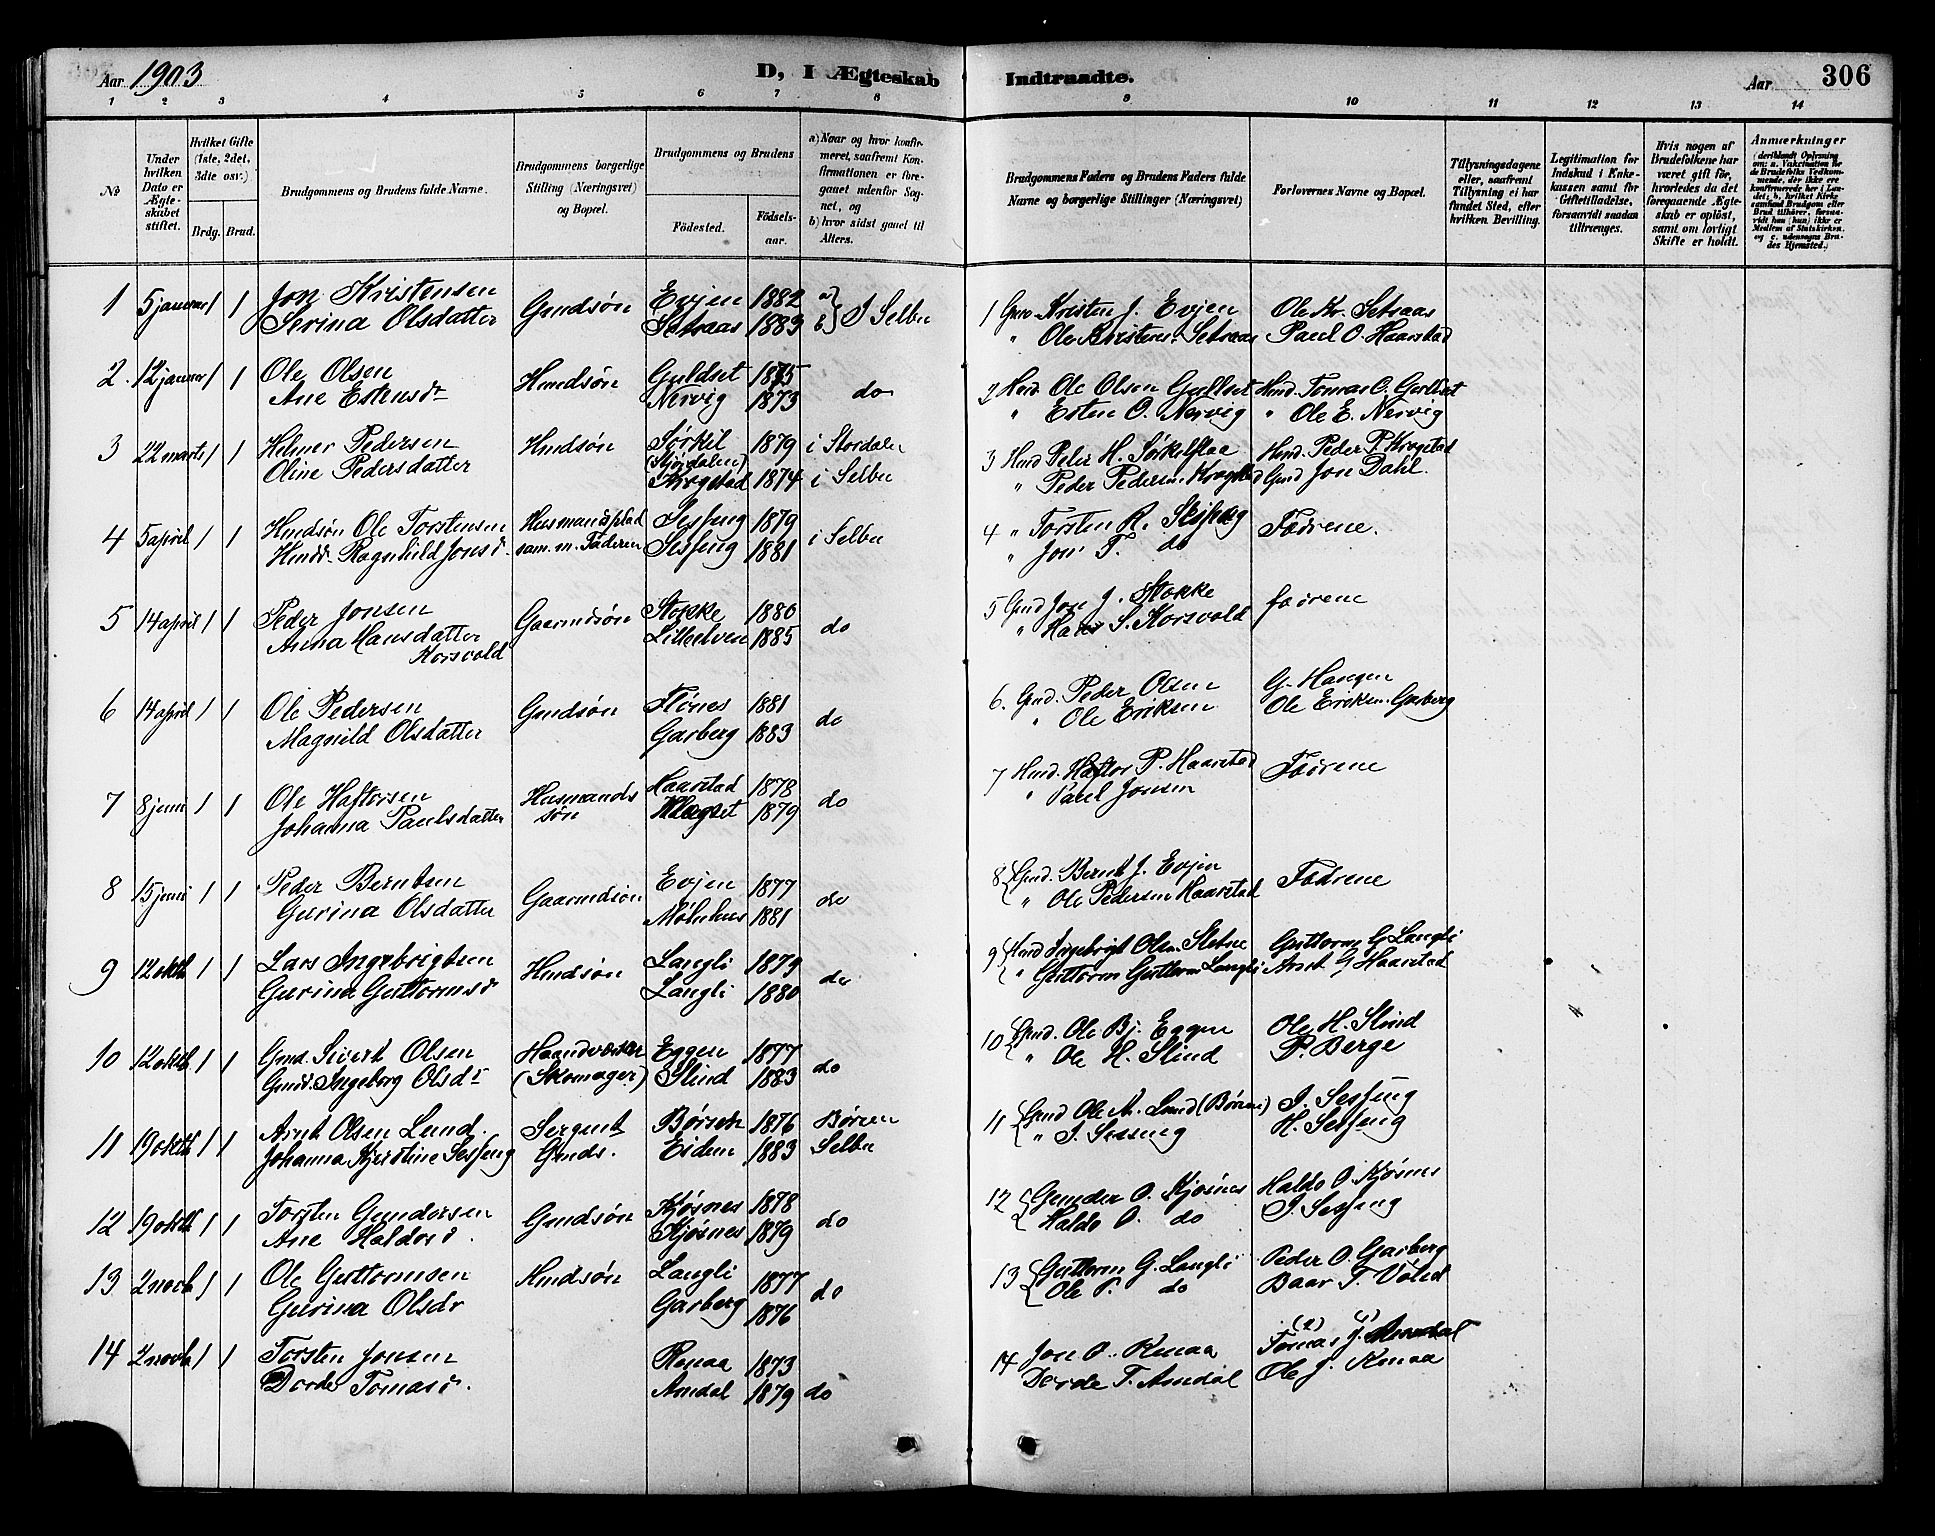 Aar 1903
D, I Ægteskab Indtraadte.
Aar 306
1 2 3 4 5 6 7 8 9 10 11 12 13 14
No
Under hvilken Dato er Ægteskabet stiftet.
Hvilket Gifte (1ste, 2det, 3die osv.)
Brdg. Brud.
Brudgommens og Brudens fulde Navne.
Brudgommens borgerlige Stilling (Næringsvei) og Bopæl.
Brudgommens og Brudens
Fødested. Fødselsaar.
a) Naar og hvor konfirmeret, saafremt Konfirmationen er foregaaet udenfor Sognet, og
b) hvor sidst gaaet til Alters.
Brudgommens Faders og Brudens Faders fulde Navne og borgerlige Stillinger (Næringsvei)
Forlovernes Navne og Bopæl.
Tillysningsdagene eller, saafremt Tillysning ei har fundet Sted, efter hvilken Bevilling.
Legitimation for Indskud i Enkekassen samt for Giftetilladelse, forsaavidt saadan tiltrænges.
Hvis nogen af Brudefolkene har været gift før, hvorledes da det foregaaende Ægteskab er opløst, samt om lovligt Skifte er holdt.
Anmærkninger
1 5 januar 1 1 Jon Kristensen Gmdsøn Evjen 1882 a) I Selbu
Serina Olsdatter Setsaas 1883 b)
1 Kristen J. Evjen Ole Kr. Setsaas
" Ole Kristens. Setsaas Paul O. Haarstad
2. 12 januar 1 1 Ole Olsen Hmdsøn Guldset 1875
Ane Estensd. Nervig 1873 do
2 Hmd. Ole Olsen Gullset Hmd. Tomas O. Gullset
" Esten O. Nervig " Ole E. Nervig
3 22 marts 1 1 Helmer Pedersen Hmdsøn Sørkil 1879 i Stordalen
Oline Pedersdatter (Stjørdalen) Krogstad 1874 i Selbu
3 Hmd Peter H. Sørkilflaa Hmd. Peder P. Krogstad
" Peder Pedersen Krogstad Gmd Jon Dahl.
4 5 april 1 1 Hmdsøn Ole Torstensen Husmandsplad Sesseng 1879 i Selbu
Hmdd. Ragnhild Jonsd. sam. m. Faderen Sesseng 1881
4 " Torsten R. Fædrene.
" Jon T. do
5 14 april 1 1 Peder Jonsen Gaarmdsøn Stokke 1880
Anna Hansdatter Korsvold Lilleelven 1885 do
5 Gmd Jon J. Stokke fædrene
" Hans S. Korsvold
6 14 april 1 1 Ole Pedersen Gmdsøn Flønes 1881
Magnild Olsdatter Garberg 1883 do
6. Gmd. Peder Olsen G. Haugen
" Ole Eriksen Ole Eriksen Garberg
7 8 juni 1 1 Ole Haftorsen Husmandssøn Haarstad 1878
Johanna Paulsdatter 1879 do
7 Hmd. Haftor P. Haarstad Fædrene
" Paul Jonsen
8 15 juni 1 1 Peder Berntsen Gaarmdsøn Evjen 1877
Gurina Olsdatter Mølnhus 1881 do
8 Gmd. Bernt J. Evjen Fædrene
" Ole Pedersen Haarstad
9 12 oktb 1 1 Lars Ingebrigtsen Hmdsøn Langli 1879
Gurina Guttormsd. Langli 1880 do
9 Hmd Ingebrigt Olsn. Sletne Guttorm G Langli
" Guttorm Guttorms Langli Arnt G Haarstad
10 12 oktb 1 1 Gmd. Sivert Olsen Haandværker Eggen 1877
Gmdd. Ingeborg Olsdr (Skomager) Slind 1883 do
10 Gmd. Ole Bj. Eggen Ole H. Slind
" Ole H. Slind P. Berge
11 19 oktb 1 1 Arnt Olsen Lund. Sergent Børseth 1876 Børsen
Johanna Kjerstine Sesseng Gmds. Eidem 1883 Selbu
11 Gmd Ole A. Lund (Børsen) J. Sesseng
" J. Sesseng H. Sesseng
12 19 oktb 1 1 Torsten Gundersen Gmdsøn Kjøsnes 1878
Ane Haldosd. Kjøsnes 1879 do
12 Gunder O. Kjøsnes Haldo O. Kjøsnes
Haldo O. do J. Sesseng
13 2 novb 1 1 Ole Guttormsen Hmdsøn Langli 1877
Gurina Olsdr Garberg 1876 do
13 Guttorm G. Langli Peder O. Garberg
Ole P. do Baar T. Volud
14 2 novb 1 1 Torsten Jonsen Renaa 1873
Dorde Tomasd. Amdal 1879 do
14 Jon O. Renaa (2) Tomas J. Amdal (1)
Dorde T. Amdal Ole J. Renaa